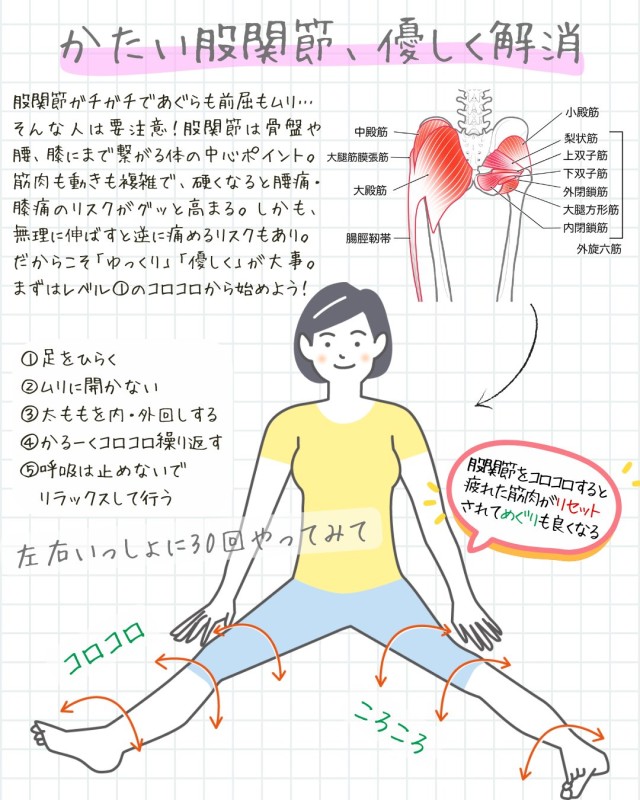 かたい股関節、優しく解消
股関節がチガチであぐらも前屈もムリ…
そんな人は要注意！股関節は骨盤や
腰、膝にまで繋がる体の中心ポイント。
筋肉も動きも複雑で、硬くなると腰痛・
膝痛のリスクがグッと高まる。しかも、
無理に伸ばすと逆に痛めるリスクもあり。
だからこそ「ゆっくり」「優しく」が大事。
まずはレベル①のコロコロから始めよう！
中殿筋
大腿筋膜張筋
大殿筋
腸脛靭帯
小殿筋
梨状筋
上双子筋
下双子筋
外閉鎖筋
大腿方形筋
内閉鎖筋
外旋六筋
①足をひらく
②ムリに開かない
③太ももを内・外回しする
④かるーくコロコロ繰り返す
⑤呼吸は止めないで
リラックスして行う
左右いっしょに30回やってみて
股関節をコロコロすると
疲れた筋肉がリセット
されてめぐりも良くなる
コロコロ
ころころ